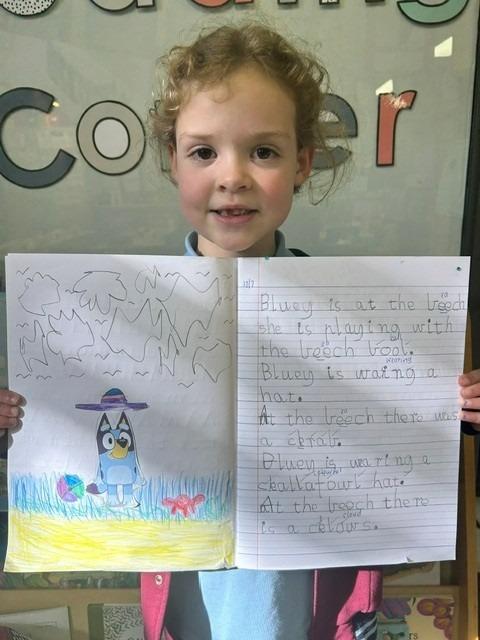 Co er
Bluey is at the beech
she is playing with
the beech bool.
wearing
Bluey is waring a
hat.
ea
At the beech there was
a crab.
Bluey is waring a
hat.
At the beech there
cloud
is a